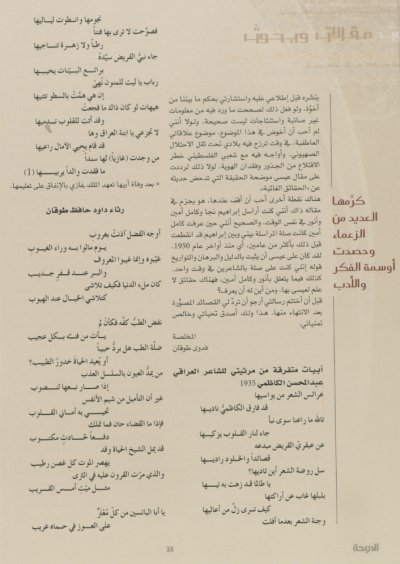 مقالات وبحوث
ينشره قبل إطلاعي عليه واستشارتي بحكم ما بيننا من
أخوّة، ولو فعل ذلك لصححت ما ورد فيه من معلومات
غير صائبة واستنتاجات ليست صحيحة. ولولا أنني
لم أحب أن أخوض في هذا الموضوع، موضوع علاقاتي
العاطفية، في وقت ترزح فيه بلادي تحت ثقل الاحتلال
الصهيوني، وأواجه فيه مع شعبي الفلسطيني خطر
الاقتلاع من الجذور وفقدان الهوية، لولا ذلك لرددت
على مقال عيسى موضحة الحقيقة التي تدحض حديثه
عن «الحقائق الغائبة».
هناك نقطة أخرى أحب أن أقف عندها، هو يجزم في
مقاله ذاك أنني كنت أراسل إبراهيم نجا وكامل أمين
وأنور في نفس الوقت، والصحيح أنني حين عرفت كامل
أمين كانت صلة المراسلة بيني وبين إبراهيم قد انقطعت
قبل ذلك بأكثر من عامين، أي منذ أواخر عام 1950.
لقد كان على عيسى أن يثبت بالدليل والبرهان والتواريخ
قوله إنني كنت على صلة بالشاعرين في وقت واحد.
كذلك فيما يتعلق بأنور وكامل أمين، فهناك حقائق لا
علم لعيسى بها، ومن أين له أن يعرف؟
قبل أن أختتم رسالتي أرجو أن تردّ لي القصائد المصوّرة
بعد الانتهاء منها. هذا ولك أصدق تحياتي وخالص
تمنياتي.
المخلصة
فدوى طوقان
أبيات متفرقة من مرثيتي للشاعر العراقي
عبدالمحسن الكاظمي 1935
عرائس الشعر من بواسيها
قد فارق الكاظميُّ ناديها
تالله ما راعنا سوى نبأ
جاء لنار القلوب يزكيها
عن عبقريّ القريض مبدعه
قصائداً والخلود راديها
سل روضة الشعر أين ثاديها؟
يا طالما قد زهت به تيها
بلبلها غاب عن أراكتها
كيف تسرى زلّ من أعاليها
وجنة الشعر بعدما أفلت
كرّمها
العديد من
الزعماء
وحصدت
أوسمة الفكر
والأدب
نجومها وانطوت لياليها
فصوّحت لا ترى بها فنناً
رطباً ولا زهرة تناجيها
جاء نبيَّ القريض سيّدةٌ
إن هي همّتْ بالسطو تثنيها
هيهات لو كان ذاك ما فجعتْ
وقد أتت للقلوب تدميها
لا تجزعي يا ابنة العراق وها
قد قام يحيي الآمال راعيها
من وجدت (غازياً) لها سنداً
ما فقدت والداً يربيها (1)
× بعد وفاة أبيها تعهد الملك غازي بالإنفاق على تعليمها.
رثاء داود حافظ طوقان
أوجه الفضل آذنتْ بغروب
يوم مالوا به وراء الغيوب
غيّبوه وإنما غيبوا المعروف
كان ملء الدنيا فكيف تلاشى
كتلاشي الخيال عند الهبوب
نفض الطبّ كفّه فكأنْ لم
يسأت من فنّه بكلّ عجيب
ضلّة الطب هل يردّ حبيباً
أو يُعيد الحياة خدورُ الطبيب؟
من يمدّ العيون بالسلسل العذب
غير أن التأميل من شيم الأنفس
تحيسي به أماني القلوب
فإذا ما القضاء حان فما تملك
دفعاً لحادثٍ مكتوب
قد يمل الشيخ الحياة وقد
يهصر الموت كل غصن رطيب
والذي مرّت القرون عليه في الثرى
يا أبا البائسين من كلّ مُعْتَرٍّ
على العوز في حماه غريب
34
الدوحة